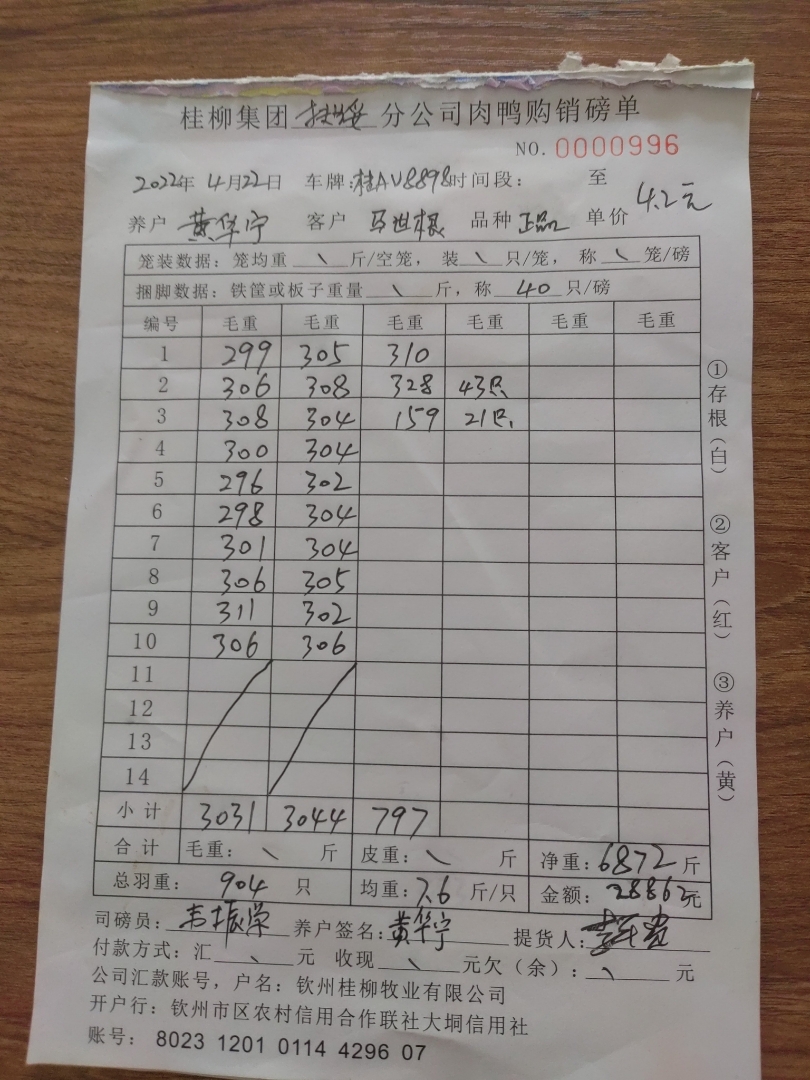 桂柳集团扶绥分公司肉鸭购销磅单
NO. 0000996
2022年 4月22日 车牌:桂AV8898时间段: 至
养户 黄华宁 客户 马世根 品种 正品 单价 4.2元
笼装数据: 笼均重 \ 斤/空笼, 装 \ 只/笼, 称 \ 笼/磅
捆脚数据: 铁筐或板子重量 \ 斤, 称 40 只/磅
编号 毛重 毛重 毛重 毛重 毛重 毛重
1 299 305 310
2 306 308 328 43只
3 308 304 159 21只
4 300 304
5 296 302
6 298 304
7 301 304
8 306 305
9 311 302
10 306 306
11
12
13
14
小计 3031 3044 797
合计 毛重: \ 斤 皮重: \ 斤 净重: 6872 斤
总羽重: 904 只 均重: 7.6 斤/只 金额: 28862元
司磅员: 韦振荣 养户签名: 黄华宁 提货人:
付款方式: 汇 \ 元 收现 \ 元欠(余): \ 元
公司汇款账号, 户名: 钦州桂柳牧业有限公司
开户行: 钦州市区农村信用合作联社大垌信用社
账号: 8023 1201 0114 4296 07
①存根(白)
②客户(红)
③养户(黄)